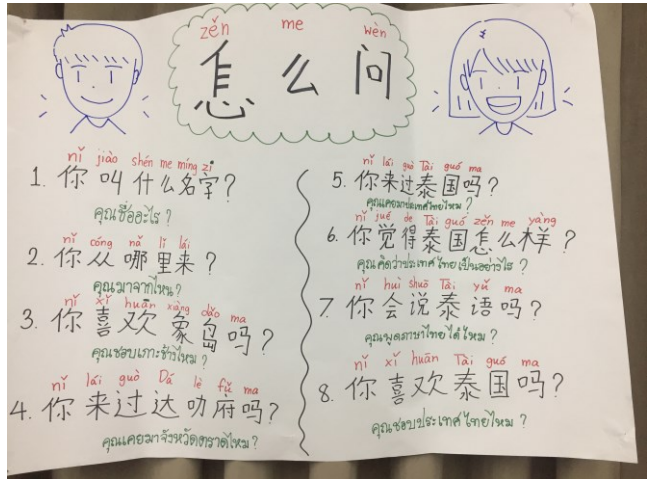 zěn me wèn
怎么问
nǐ jiào shén me míng zi
1. 你叫什么名字?
คุณชื่ออะไร ?
nǐ cóng nǎ lǐ lái
2. 你从哪里来?
คุณมาจากไหน?
nǐ xǐ huān xiàng dǎo ma
3. 你喜欢象岛吗?
คุณชอบเกาะช้างไหม ?
nǐ lái guò Dá lè fǔ ma
4. 你来过达叻府吗?
คุณเคยมาจังหวัดตราดไหม ?
nǐ lái guò Tài guó ma
5. 你来过泰国吗?
คุณเคยมาประเทศไทยไหม ?
nǐ jué de Tài guó zěn me yàng
6. 你觉得泰国怎么样?
คุณคิดว่าประเทศไทยเป็นอย่างไร ?
nǐ huì shuō Tài yǔ ma
7. 你会说泰语吗?
คุณพูดภาษาไทยได้ไหม ?
nǐ xǐ huān Tài guó ma
8. 你喜欢泰国吗?
คุณชอบประเทศไทยไหม ?